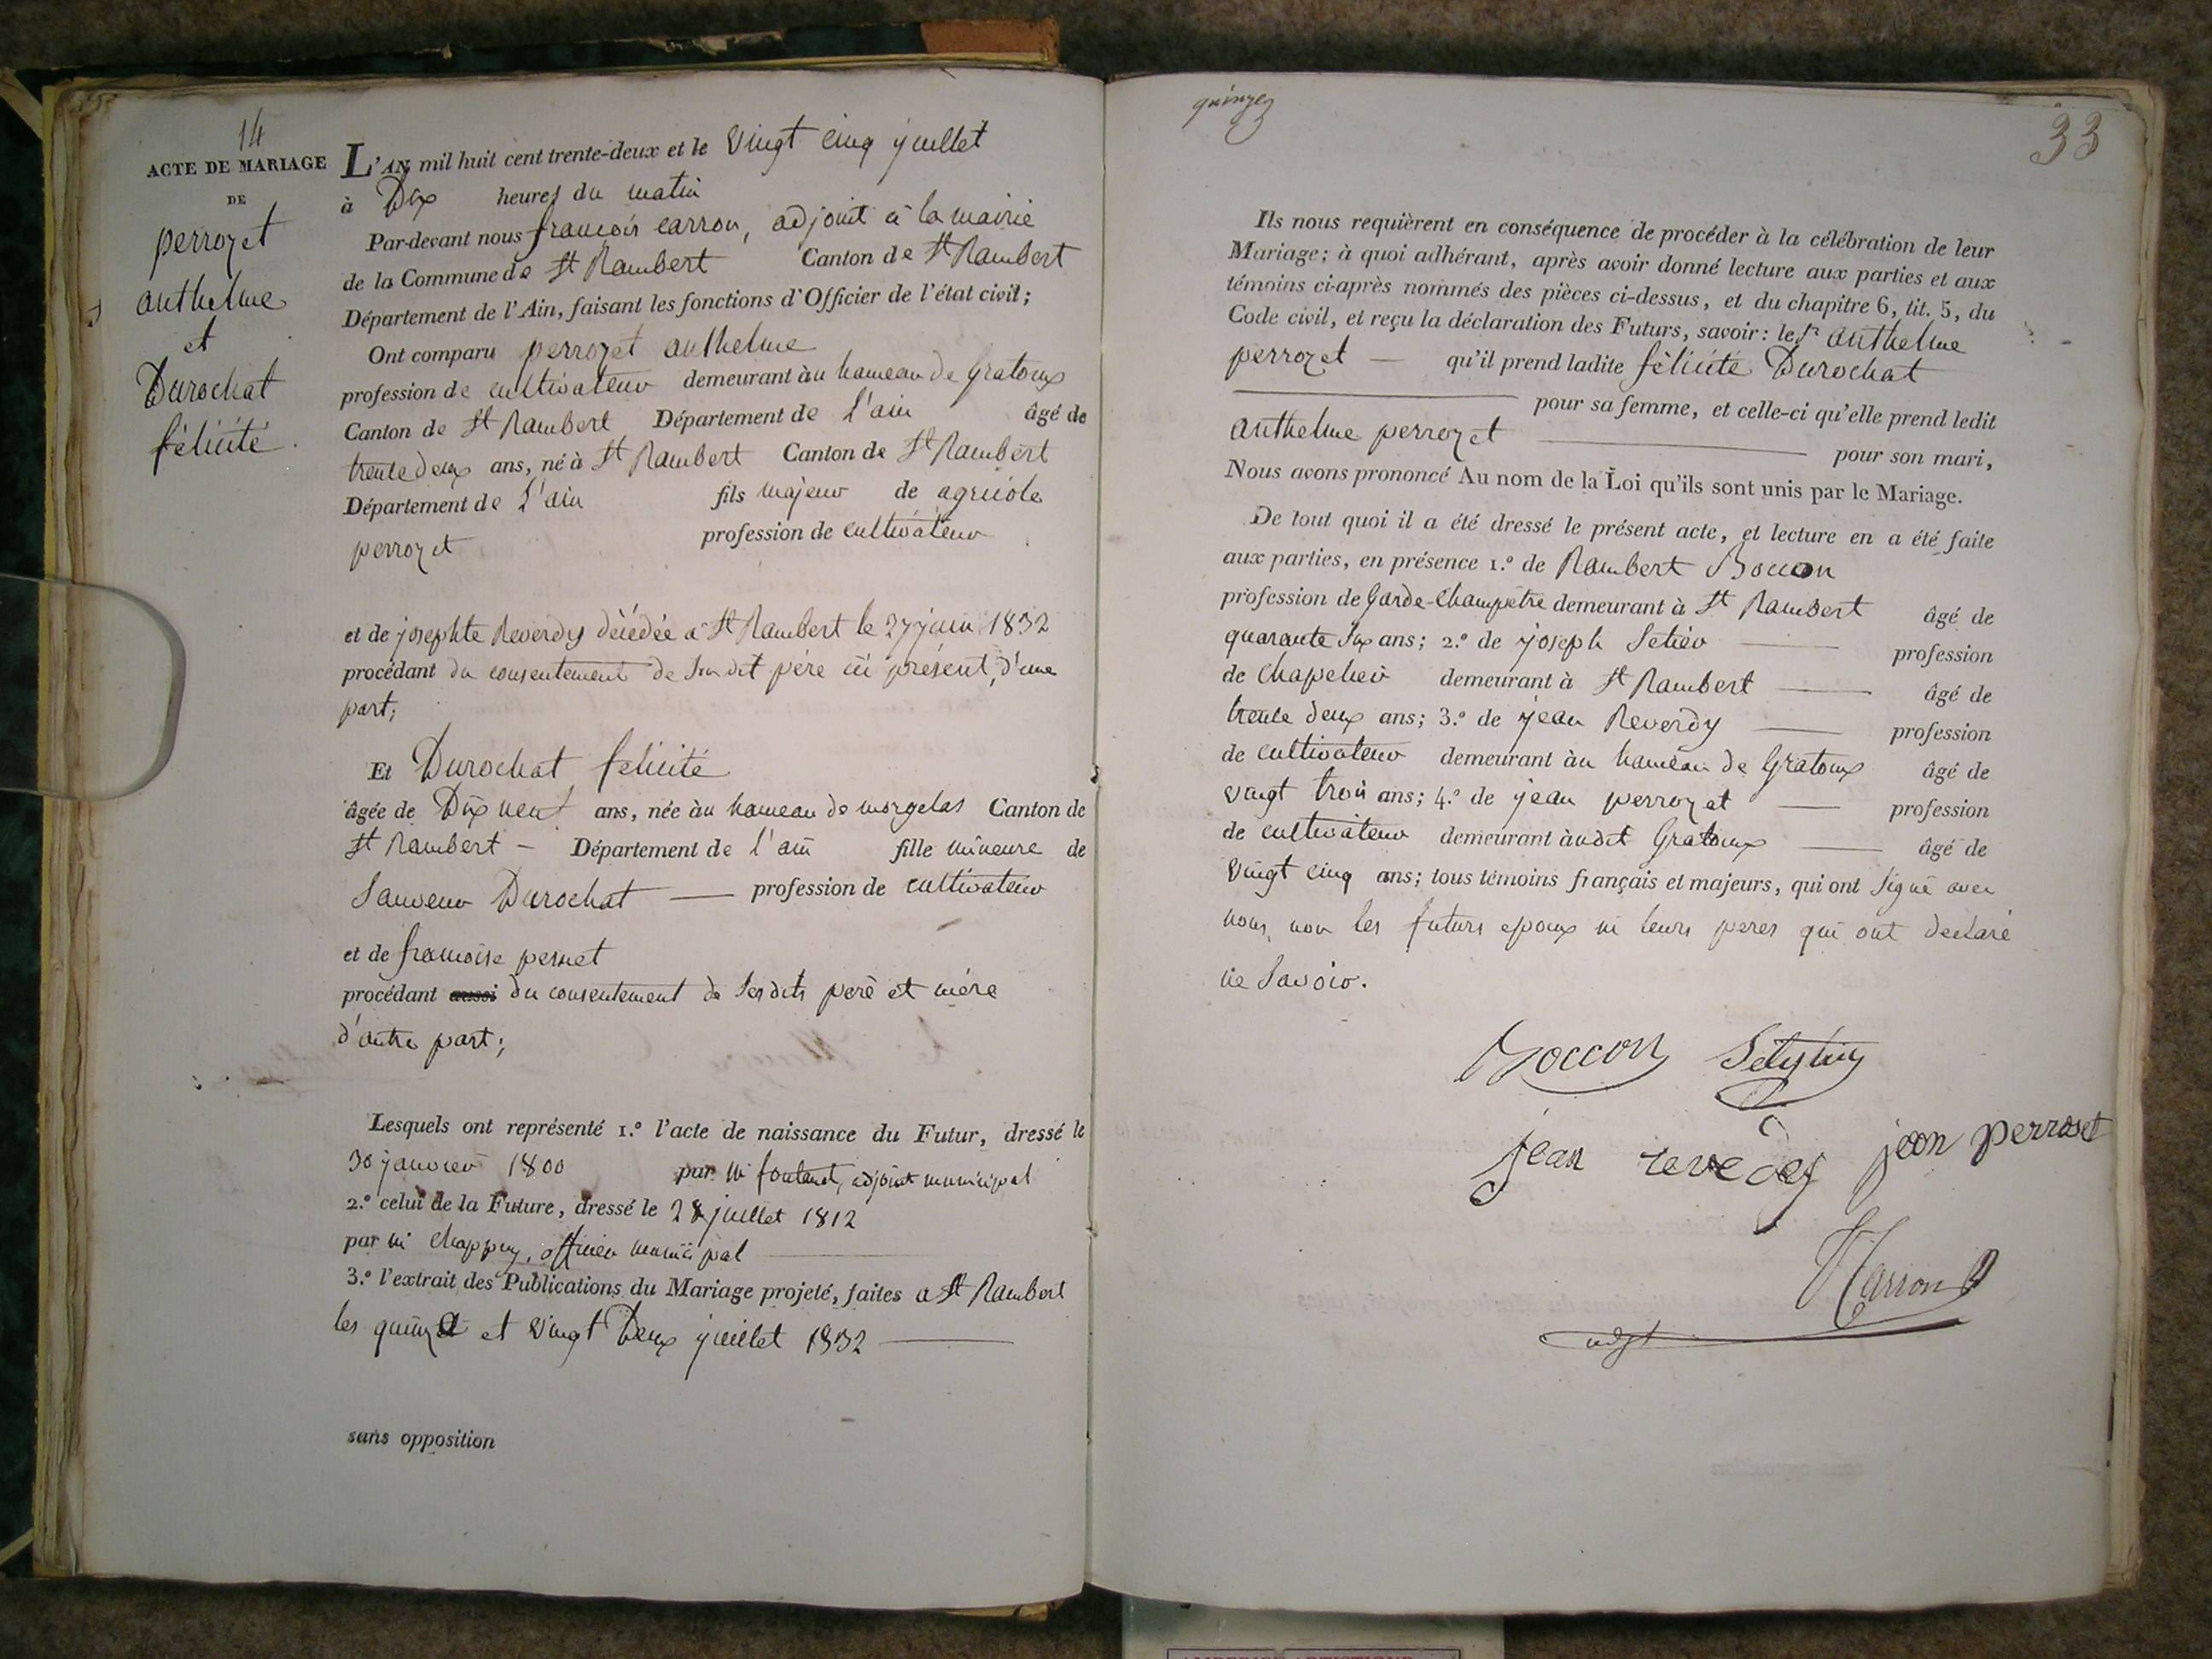 14
ACTE DE MARIAGE
DE
perrozet
anthelme
et
Durochat
félicité.
L'AN mil huit cent trente-deux et le Vingt cinq juillet
à Dix heures du matin
Par-devant nous francois carron, adjoint à la mairie
de la Commune de St Rambert Canton de St Rambert
Département de l'Ain, faisant les fonctions d'Officier de l'état civil;
Ont comparu perrozet anthelme
profession de cultivateur demeurant àu hameau de Gratoux
Canton de St Rambert Département de L'ain âgé de
trente deux ans, né à St Rambert Canton de St Rambert
Département de L'ain fils majeur de agricole
perrozet profession de cultivateur
et de josephte Reverdy décédée à St Rambert le 27 juin 1832
procédant du consentement de son dit père ici présent, d'une
part;
Et Durochat felicité
âgée de Dix neuf ans, née àu hameau de morgelas Canton de
St Rambert - Département de l'ain fille mineure de
Sauveur Durochat profession de cultivateur
et de francoise pernet
procédant aussi du consentement de ses dits père et mère
d'autre part;
Lesquels ont représenté 1.º l'acte de naissance du Futur, dressé le
30 janvier 1800 par m fontanet, adjoint municipal
2.º celui de la Future, dressé le 28 juillet 1812
par m Chappuy, officier municipal
3.º l'extrait des Publications du Mariage projeté, faites a St Rambert
les quinze et vingt Deux juillet 1832
sans opposition
quinze
33
Ils nous requièrent en conséquence de procéder à la célébration de leur
Mariage; à quoi adhérant, après avoir donné lecture aux parties et aux
témoins ci-après nommés des pièces ci-dessus, et du chapitre 6, tit. 5, du
Code civil, et reçu la déclaration des Futurs, savoir: le sr anthelme
perrozet — qu'il prend ladite félicité Durochat
pour sa femme, et celle-ci qu'elle prend ledit
anthelme perrozet pour son mari,
Nous avons prononcé Au nom de la Loi qu'ils sont unis par le Mariage.
De tout quoi il a été dressé le présent acte, et lecture en a été faite
aux parties, en présence 1.º de Rambert Boccon
profession de Garde-Champêtre demeurant à St Rambert âgé de
quarante six ans; 2.º de joseph Setier profession
de Chapelier demeurant à St Rambert âgé de
trente deux ans; 3.º de jean Reverdy profession
de cultivateur demeurant àu hameau de Gratoux âgé de
vingt trois ans; 4.º de jean perrozet profession
de cultivateur demeurant àudit Gratoux âgé de
Vingt cinq ans; tous témoins français et majeurs, qui ont signé avec
nous, non les futurs epoux ni leurs peres qui ont declaré
ne Savoir.
Boccon
jean reverdy jean perroset
Carron
adjt